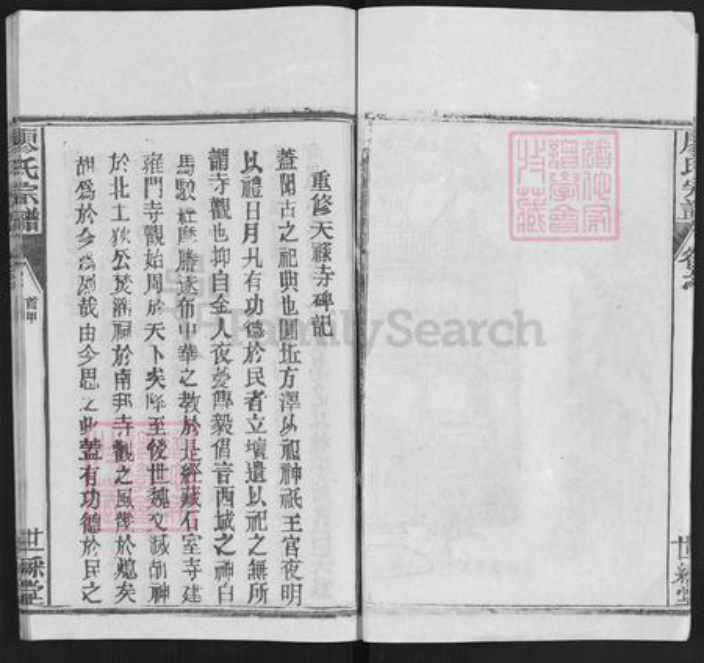 廖氏宗譜
卷之
世綵堂
重修天䘵寺碑記
蓋聞古之祀典也圜坵方澤以祀神祇王宮夜明
以禮日月凡有功德於民者立壇遺以祀之無所
謂寺觀也抑自金人夜夢傅毅倡言西域之神白
馬馱經摩騰遂布中華之教於是經藏石室寺建
雍門寺觀始周於天下矣降至後世魏文滅胡神
於北土狄公焚淫祠於南邦寺觀之風幾於熄矣
胡為於今為烈哉由今思之此蓋有功德於民之
廖氏宗譜
首甲
世綵堂
FamilySearch